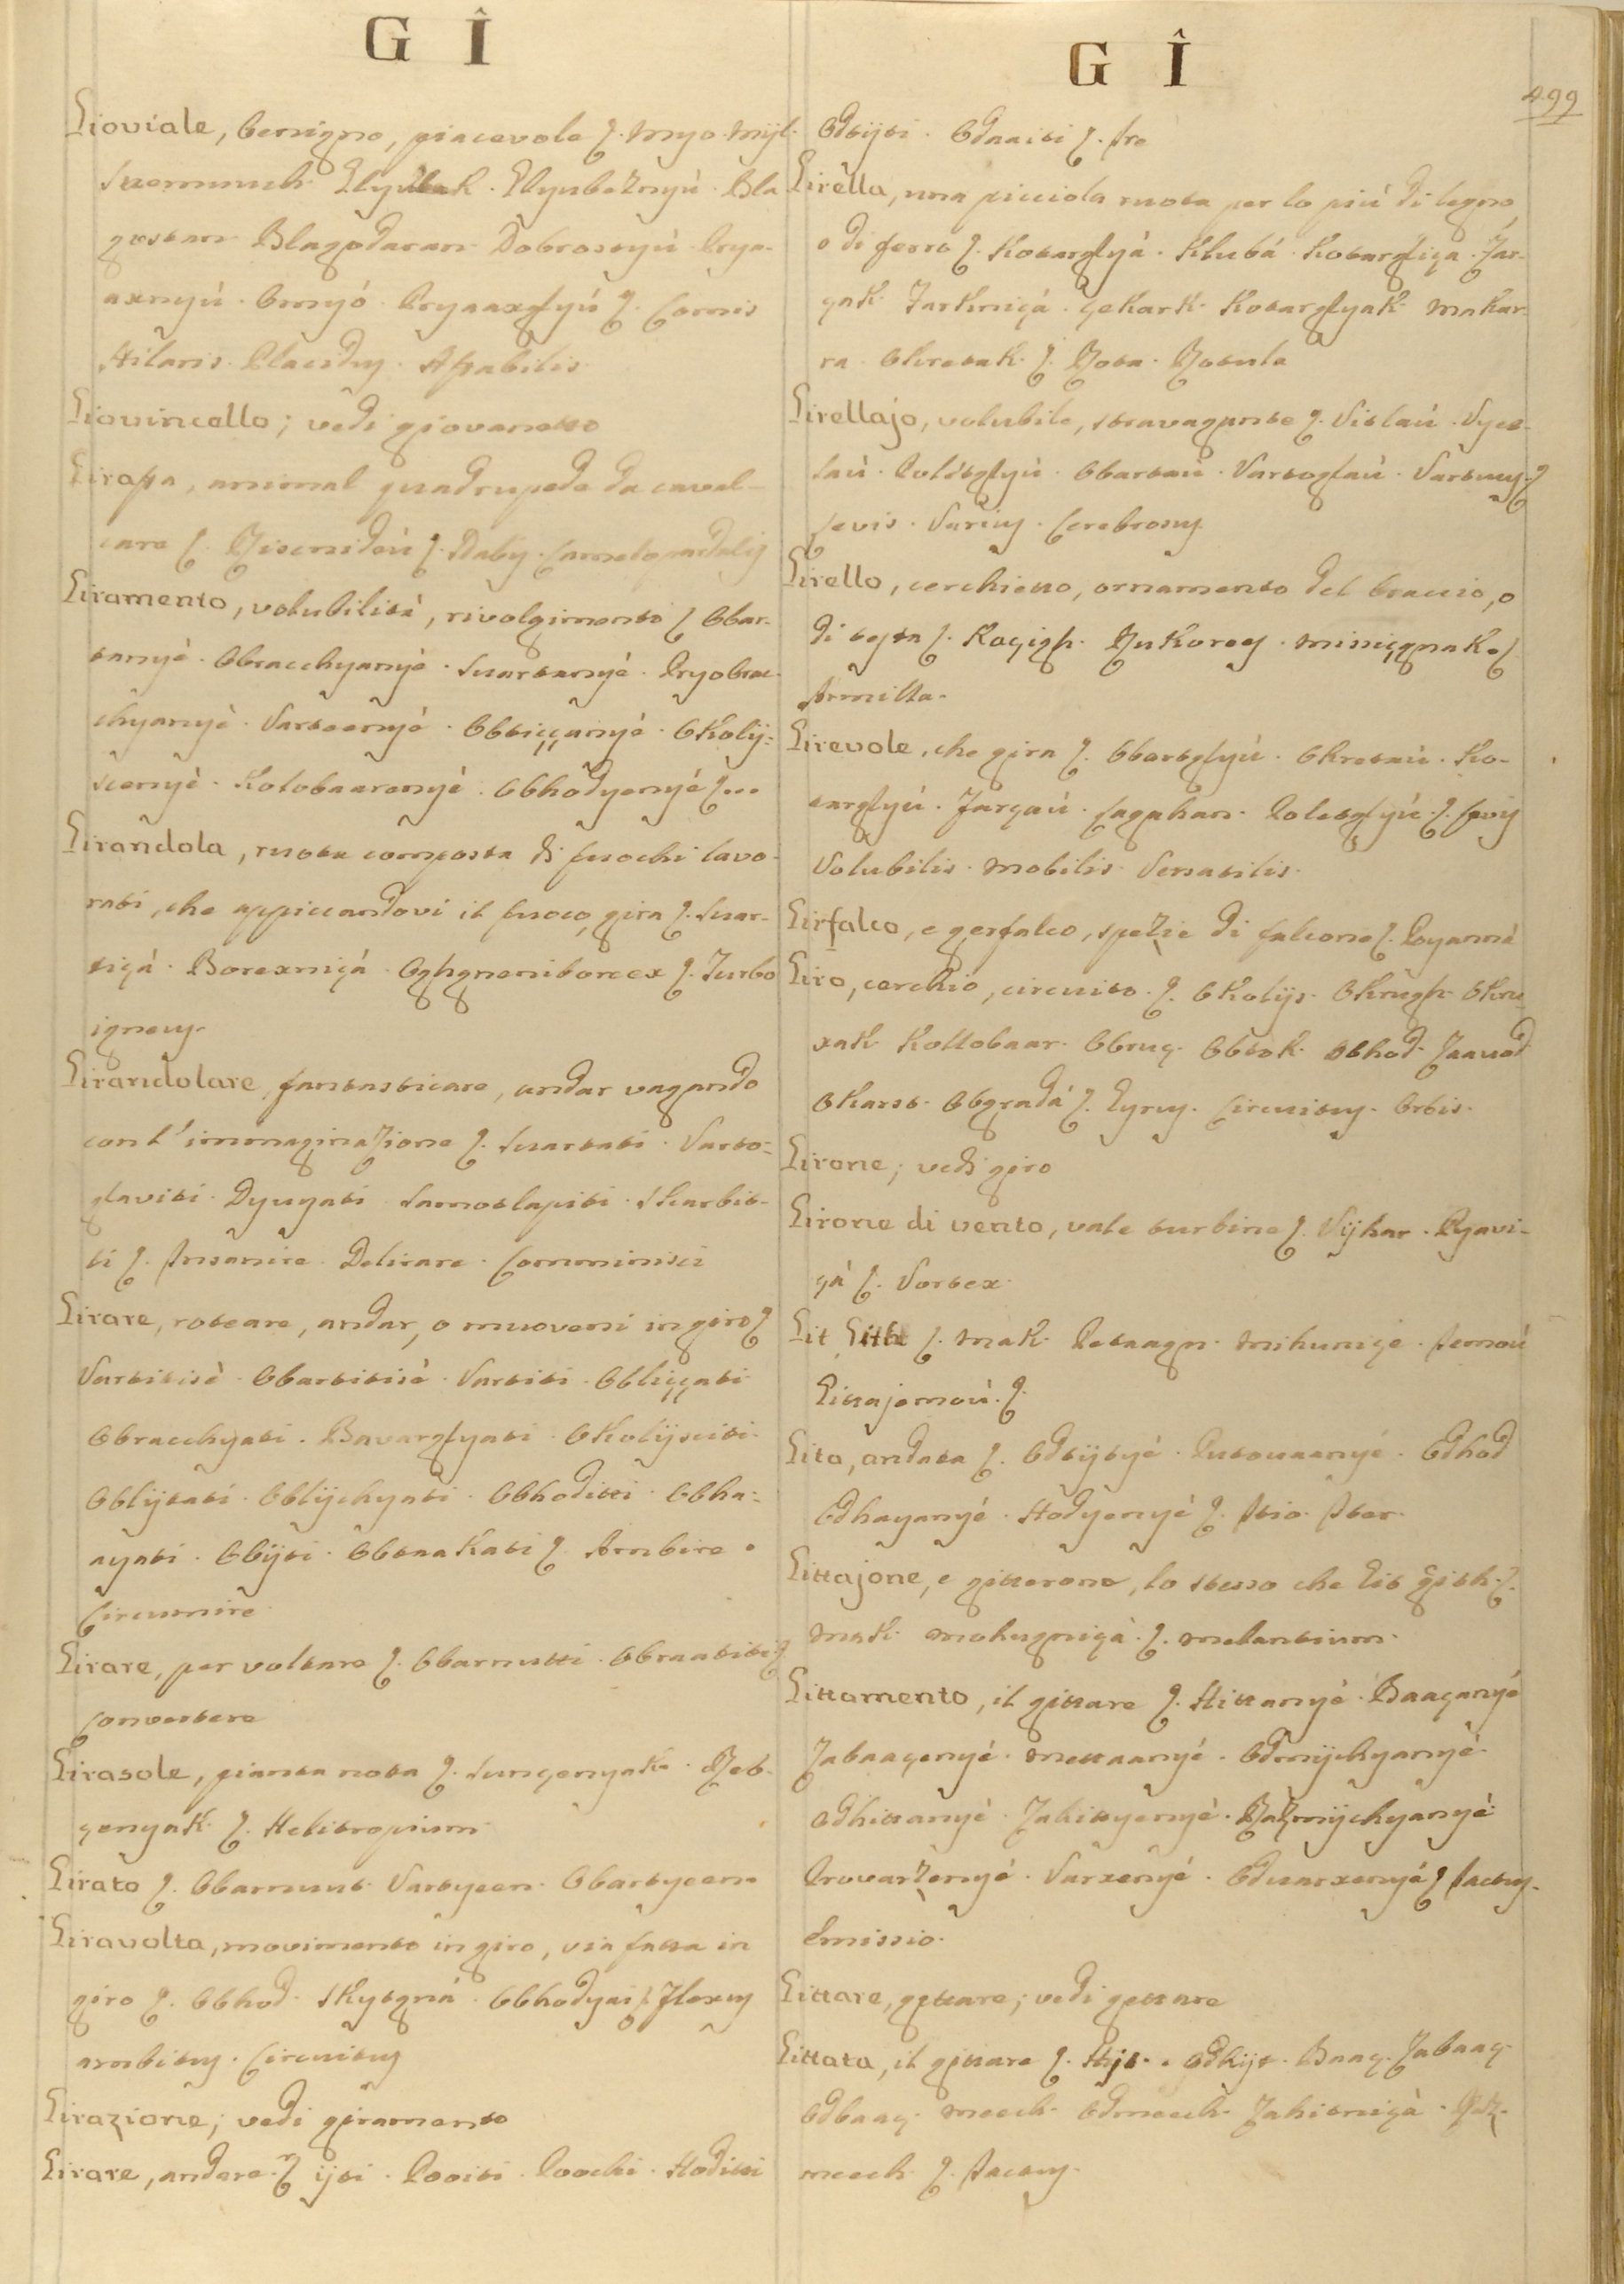 G Î
Gioviale, benigno, piacevole ɭ. Myo. Myl.
Smornuch. Glyubak. Glyubeznyú. Bla
gostan. Blagodaran. Dobrostnyú. Prya-
aznyú. Omyó. Pryaazglyú ɭ. Comis
Hilaris. Placidus. Affabilis.
Giovincello; vedi giovanetto
Giraffa, animal quadrupede da caval-
care ɭ. Riscnidóú ɭ. Naby. Camelopardalis
Giramento, volubilità, rivolgimento ɭ Obar-
tanyé. Obracchyanyé. Suartanyé. Pryobrac-
chyanyé. Varteenyé. Obtiççanyé. Okoly-
scenyé. Kolobaarenyé. Obhodyenyé ɭ...
Girandola, ruota composta di fuochi lavo-
rati, che appiccandovi il fuoco, gira ɭ. Suar-
tiçá. Borexniçá. Oghgneniborcex ɭ. Turbo
igneus.
Girandolare, fantasticare, andar vagando
con l'immaginazione ɭ. Suartati. Varto-
glaviti. Dyugati. Samotlapiti. Skarbit-
ti ɭ. Insanire. Delirare. Comminisci
Girare, roteare, andar, o muoversi in giro ɭ
Vartitisé. Obartitisé. Vartiti. Obliççati.
Obracchyati. Bavarglyati. Okolysciti.
Oblytati. Oblychyati. Obhoditti. Obha-
ayati. Obijti. Obtaakati ɭ. Ambire.
Circumire.
Girare, per voltare ɭ. Obarnutti. Obraatiti ɭ
Convertere
Girasole, pianta nota ɭ. Sunçenyak. Neb-
çenyak. ɭ. Helitropium.
Girato ɭ. Obarnuut. Vartyeen. Obartyeen.
Giravolta, movimento in giro, via fatta in
giro ɭ. Obhod. Skytgná. Obhodyai ɭ. Flexus
ambitus. Circuitus
Girazione; vedi giramento
Girare, andare. ɭ ijti. Pooiti. Poochi. Hoditti
G Î
499
Odtijti. Odnaiti ɭ. Ire
Girella, una picciola ruota per lo più di legno,
o di ferro ɭ. Kotarglyá. Klubá. Kotargliça. Zar-
çak. Zarkniçá. çekark. Kotarglyak. Makar-
ra. Okretak. ɭ. Rota. Rotula
Girellajo, volubile, stravagante ɭ. Vitlaú. Vyet-
laú. Polétglyú. Obartaú. Vartoglaú. Vartuuy. ɭ
Levis. Varius. Cerebrosus.
Girello, cerchietto, ornamento del braccio, o
di testa ɭ. Koçigh. Rukoroy. Minicçgnak. ɭ.
Armilla.
Girevole, che gira ɭ. Obartglyú. Okretaú. Ko-
targlyú. Zarçaú. Lagahan. Poletglyú. ɭ. Levis
Volubilis. Mobilis. Versatilis.
Girfalco, e gerfalco, spezie di falcone ɭ. Poyanné
Giro, cerchio, circuito. ɭ. Okolijs. Okrugh. Okru-
xak. Kollobaar. Obruç. Obtok. Obhod. Zaavod
Okarst. Obgradá ɭ. Gyrus. Circuitus. Orbis.
Girone; vedi giro
Girone di vento, vale turbine ɭ. Vijhar. Pyavi-
çá ɭ. Vortex.
Git Gith ɭ. Mak. Petaagn. Mihuniçe. Jemoú
Gittajemoú. ɭ.
Gita, andata ɭ. Odtijtyé. Putovaanyé. Odhod
Odhayanyé. Hodyenyé ɭ. Itio. Iter.
Gittajone, e gitterone, lo stesso che Git gith. ɭ.
Mak. Mohugniçá. ɭ. Melantium.
Gittamento, il gittare ɭ. Hittanyé. Baaçanyé
Zabaaçenyé. Mettaanyé. Odmijchyanyé.
Odhittanyé. Zahittyenyé. Razmijchyanyé.
Provarzenyé. Varxenyé. Oduarxenyé ɭ Jactus.
Emissio.
Gittare, gettare; vedi gettare
Gittata, il gittare ɭ. Hijt. Odhijt. Baaç. Zabaaç.
Odbaaç. Meech. Odmeech. Zahitniçá. Raz-
meech ɭ. Jactus.